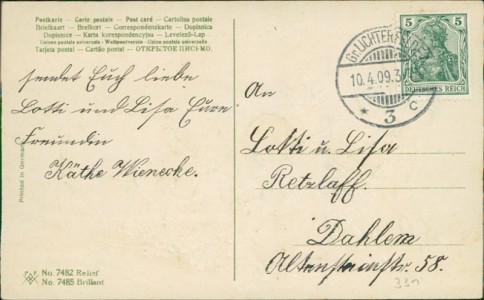 Postkarte - Carte postale - Post card - Cartolina postale
Briefkaart - Brefkort - Correspondenzkarte - Dopisnica
Dopisnice - Karta korespondencyjna - Levelező-Lap
Union postale universelle - Weltpostverein - Union postale universelle
Tarjeta postal - Cartão postal - ОТКРЫТОЕ ПИСЬМО.
sendet Euch liebe
Lotti und Lisa Eure
Freundin
Käthe Wienecke.
Printed in Germany
No. 7482 Relief
No. 7485 Brillant
5 5
DEUTSCHES REICH
Gr. LICHTERFELDE
10.4.09.3
* 3 c
An
Lotti u. Lisa
Retzlaff.
Dahlem
Altensteinstr. 58.